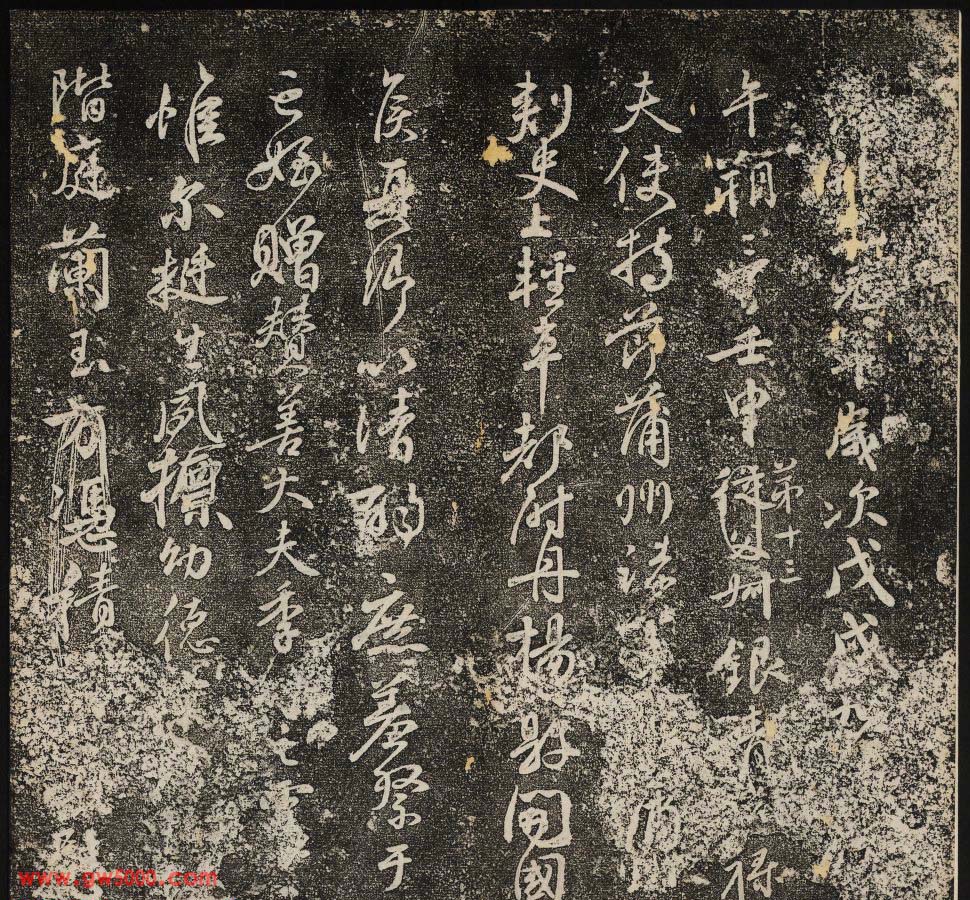 維乾元元年歲次戊戌九
午朔三日壬申第十三從父銀青 祿
夫使持節蒲州諸軍 蒲州
刺史上輕車都尉丹楊縣開國
侯真卿以清酌庶羞祭于
亡姪贈贊善大夫季 之靈
惟爾挺生夙標幼德
階庭蘭玉方憑積
www.gw5000.com